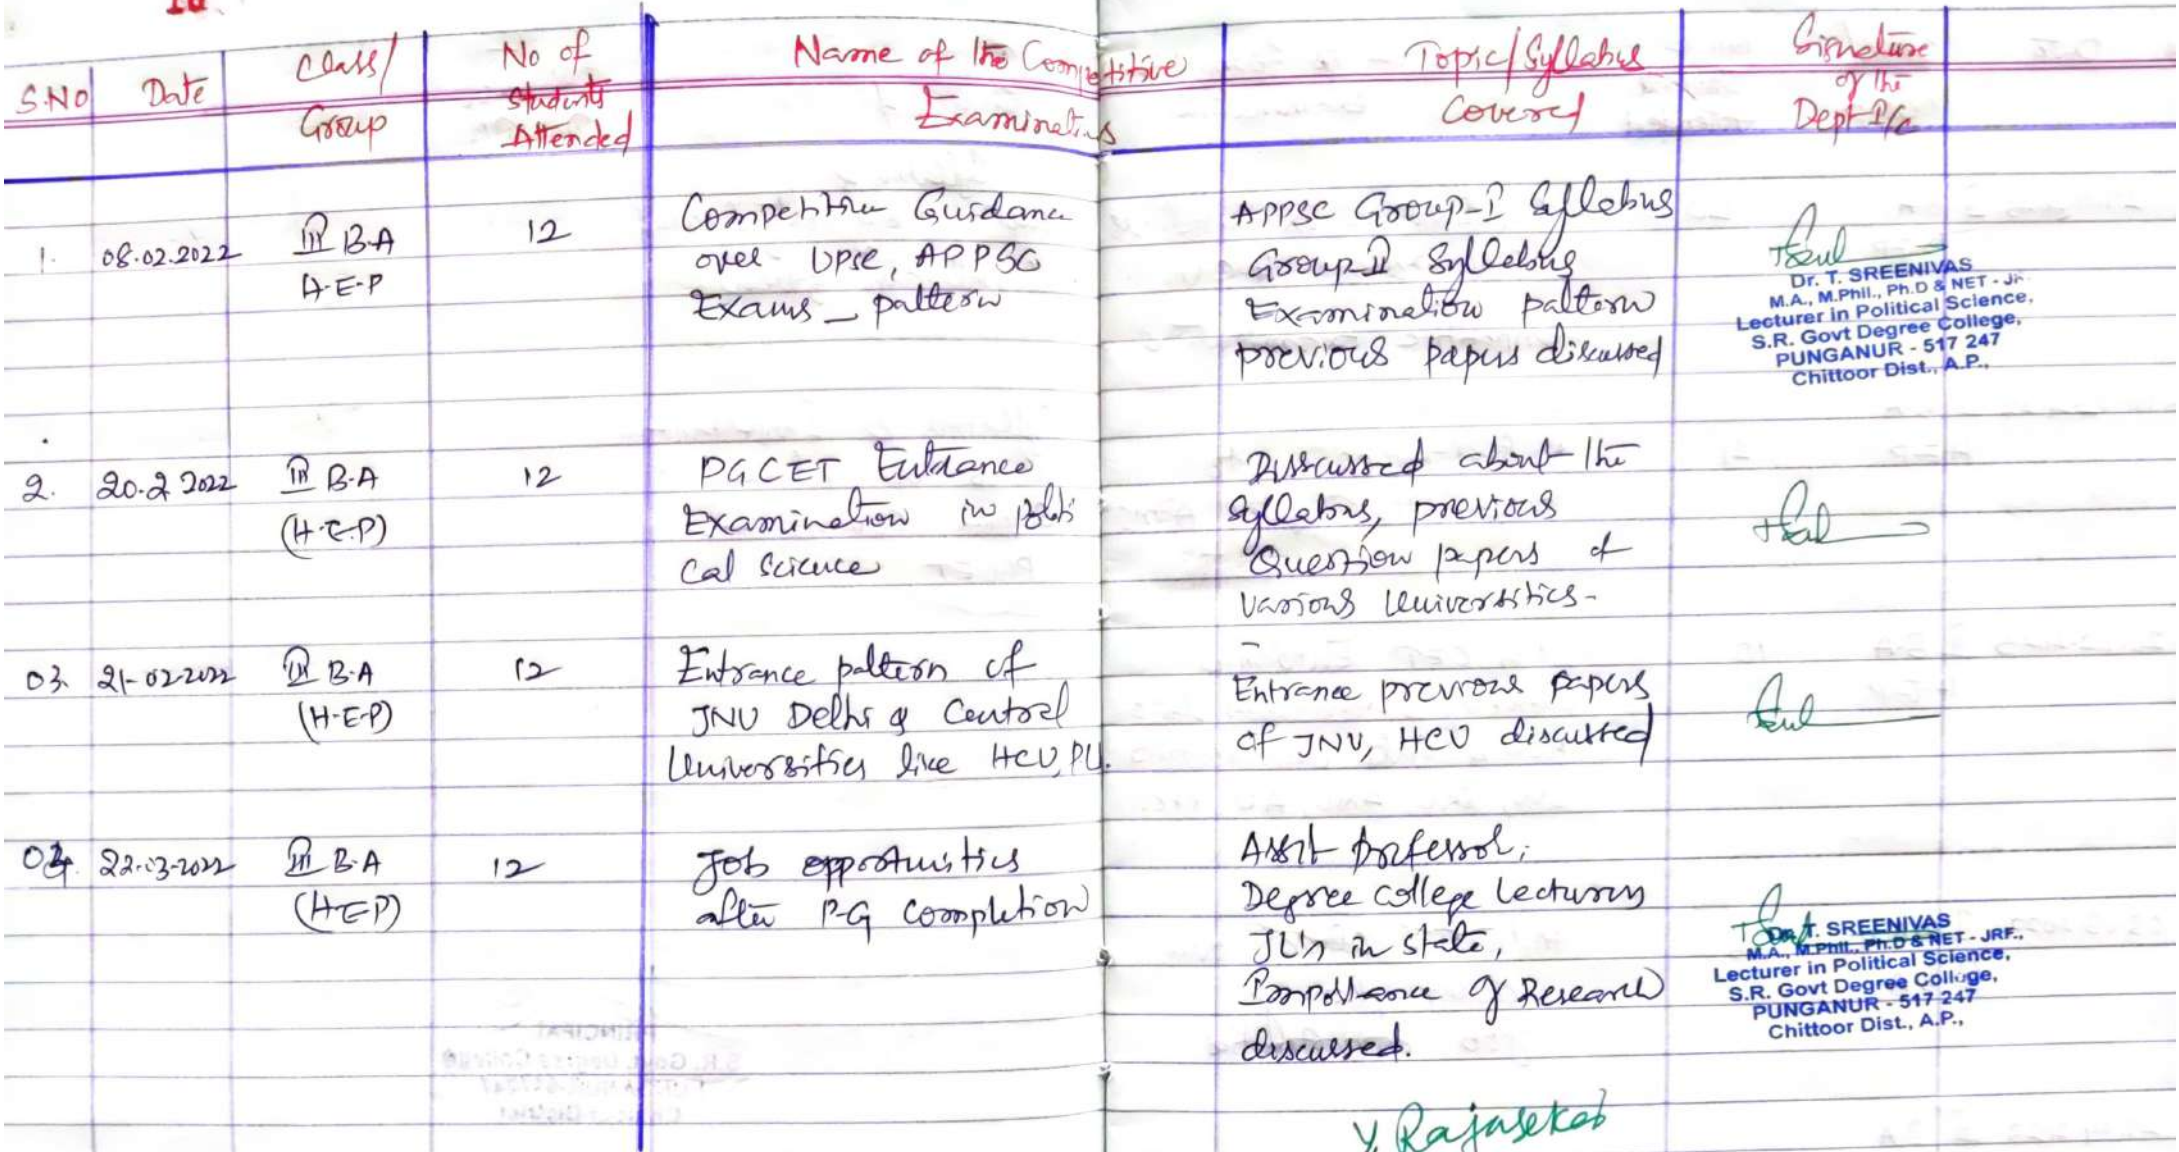 S.NO
Date
Class/
Group
No of
Students
Attended
Name of the Competitive
Examinations
Topic/Syllabus
Covered
Signature
of the
Dept I/c
1.
08.02.2022
III B.A
H-E-P
12
Competitive Guidance
over UPSC, APPSC
Exams - pattern
APPSC Group-I Syllabus
Group-II Syllabus
Examination pattern
previous papers discussed
Dr. T. SREENIVAS
M.A., M.Phil., Ph.D & NET - JR
Lecturer in Political Science,
S.R. Govt Degree College,
PUNGANUR - 517 247
Chittoor Dist., A.P.,
2.
20.2 2022
III B.A
(H-E-P)
12
PGCET Entrance
Examination in politi
cal science
Discussed about the
Syllabus, previous
Question papers of
various Universities-
03.
21-02-2022
III B.A
(H-E-P)
12
Entrance pattern of
JNU Delhi & Central
Universities like HCU, PU.
Entrance previous papers
of JNU, HCU discussed
04.
22-03-2022
III B.A
(H-E-P)
12
Job opportunities
after P-G completion
Assit professor,
Degree college lecturers
JL's in state,
Importance of Research
discussed.
Dr. T. SREENIVAS
M.A., M.Phil., Ph.D & NET - JRF.,
Lecturer in Political Science,
S.R. Govt Degree College,
PUNGANUR - 517 247
Chittoor Dist., A.P.,
Y. Rajasekar